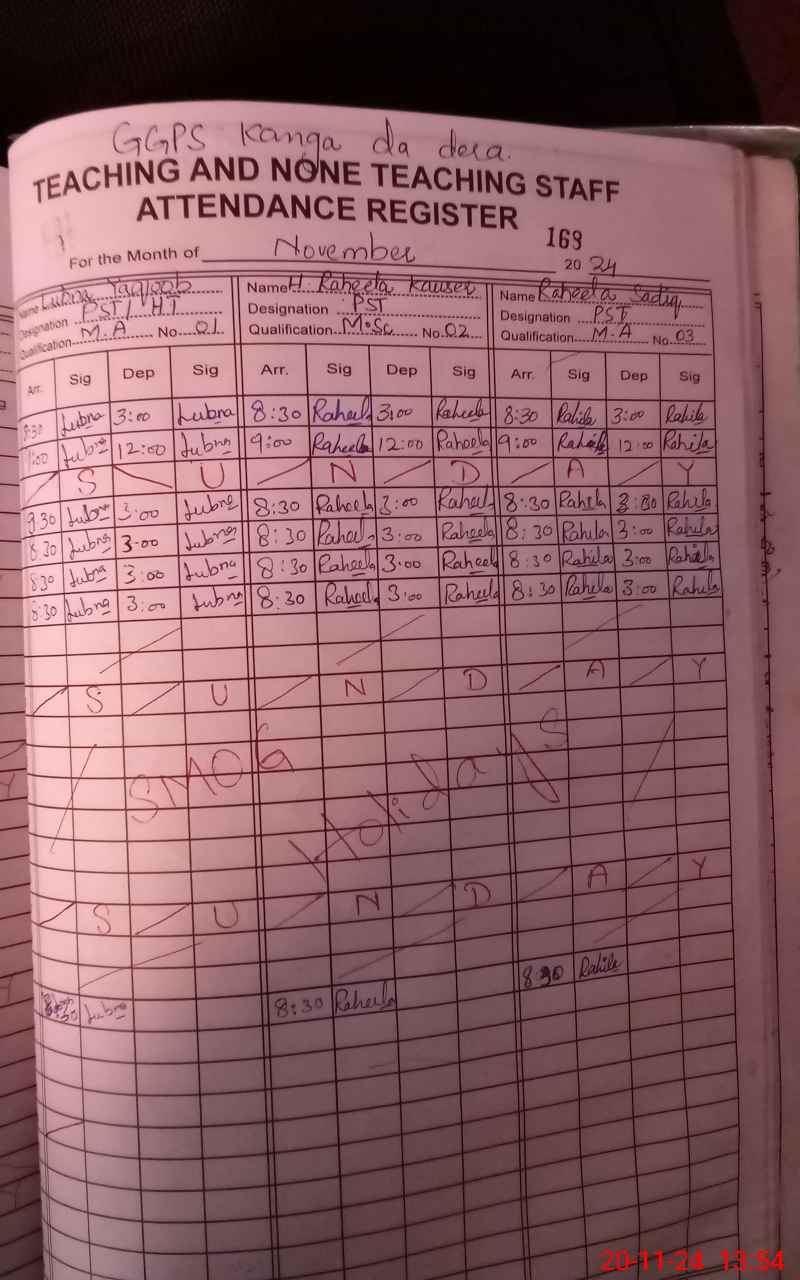 GGPS Kanga da dera.
TEACHING AND NONE TEACHING STAFF
ATTENDANCE REGISTER
169
For the Month of November 2024
Name Lubna Yaqoob Name H. Raheela Kauser Name Raheela Sadiq
Designation PST/ HT Designation PST Designation PST
Qualification M.A No. 01 Qualification M.Sc No. 02 Qualification M.A No. 03
Arr. Sig Dep Sig Arr. Sig Dep Sig Arr. Sig Dep Sig
8:30 Lubna 3:00 Lubna 8:30 Raheela 3:00 Raheela 8:30 Rahila 3:00 Rahila
Lubna 12:00 Lubna 9:00 Raheela 12:00 Raheela 9:00 Rahila 12:00 Rahila
S U N D A Y
Lubna 3:00 Lubna 8:30 Raheela 3:00 Raheela 8:30 Rahila Rahila
8:30 Lubna 3:00 Lubna 8:30 Raheela 3:00 Raheela 8:30 Rahila 3:00 Rahila
8:30 Lubna 3:00 Lubna 8:30 Raheela 3:00 Raheela 8:30 Rahila 3:00 Rahila
8:30 Lubna 3:00 Lubna 8:30 Raheela 3:00 Raheela 8:30 Rahila 3:00 Rahila
S U N D A Y
SMOG Holidays
S U N D A Y
Lubna 8:30 Raheela 8:30 Rahila
20-11-24 13:54